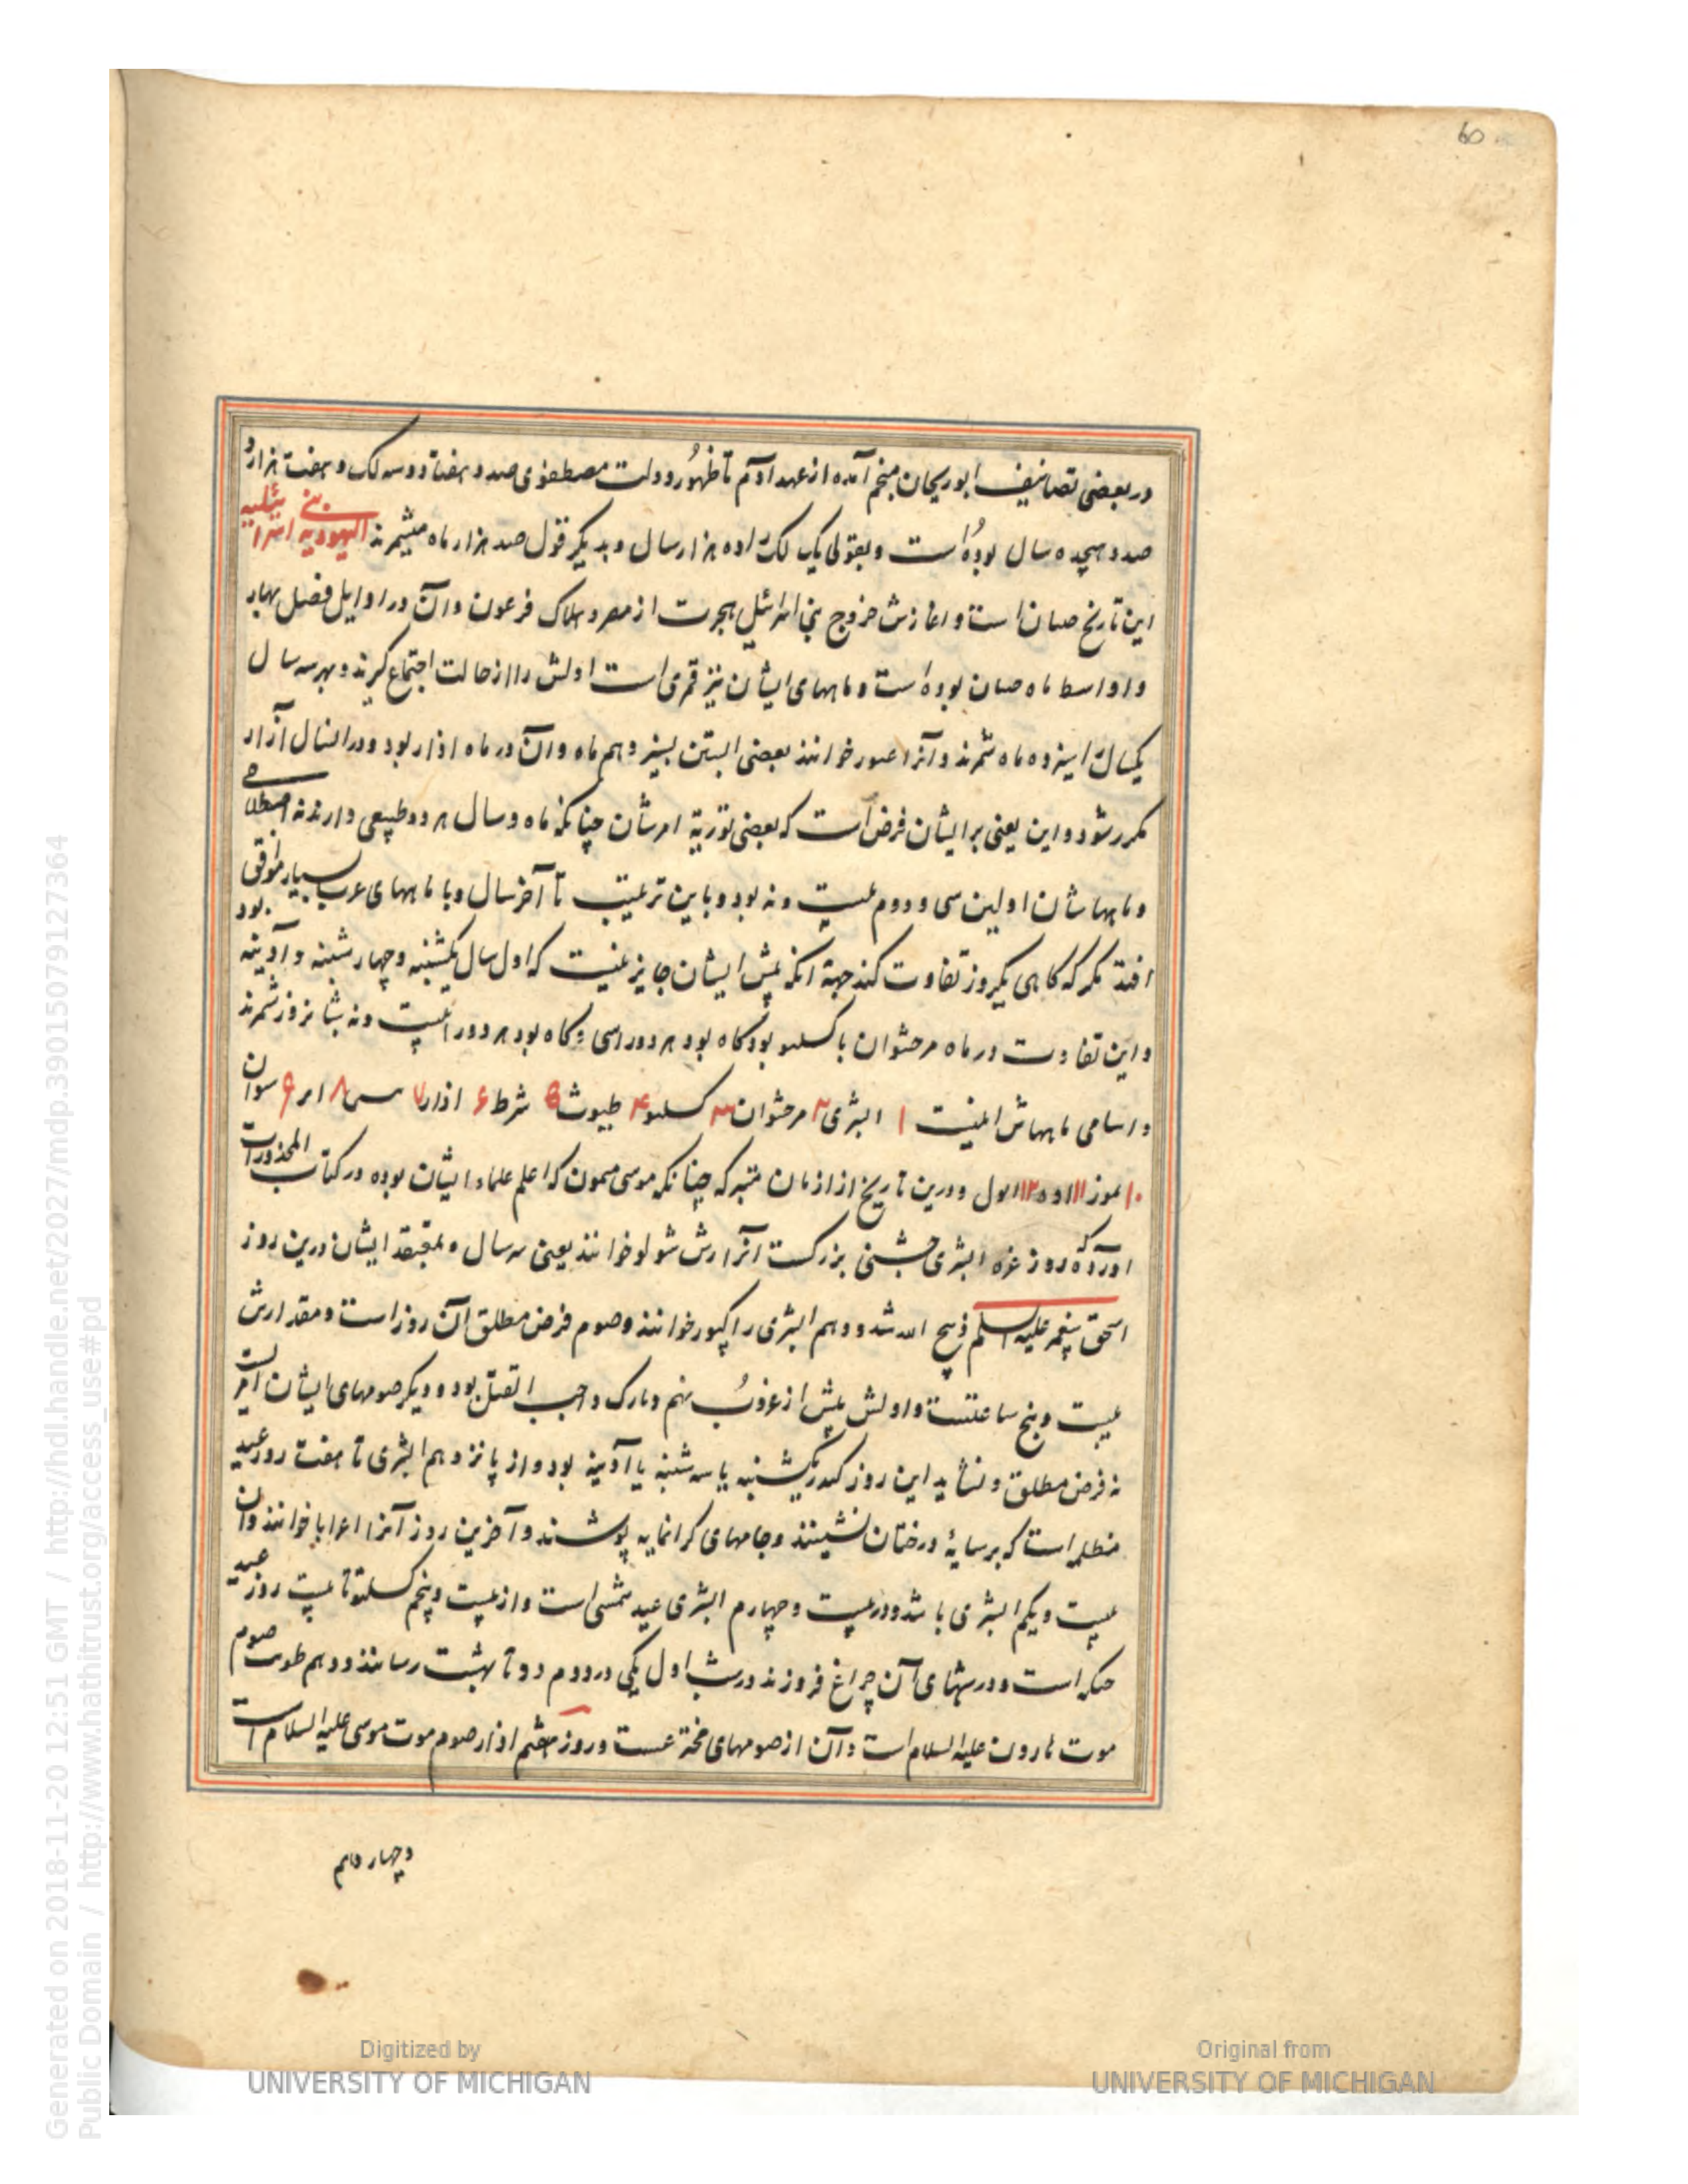 در بعضی تصانیف ابوریحان منجم آمده از عهد آدم تا ظهور دولت مصطفوی صد و هفتاد و سه لک و هفت هزار و
صد و هیجده سال بوده است و بقولی یک لک اده هزار سال و بدیگر قول صد هزار ماه میشمرند الیهودیه بنی اسرائیلیه
این تاریخ است و اغازش خروج بنی اسرائیل بهجرت از مصر و هلاک فرعون و آن در اوایل فصل بهار
و اواسط ماه بوده است و ماههای ایشان نیز قمری است اولش را از حالت اجتماع گیرند و بهر سه سال
یکسال را سیزده ماه شمرند و آنرا عبور خوانند بعضی البتن بسیزدهم ماه و آن در ماه اذار بود و در انسال آزار
مکرر شود و این یعنی بر ایشان فرض است که بعضی توریة امرشان چنانکه ماه و سال هر دو طبیعی دارند نه اصطلاحی
و ماهها شان اولین سی و دوم بیست و نه بود و باین ترتیب تا آخر سال و با ماههای عرب بسیار موافق بود
افتد مگر که گاهی یکروز تفاوت کند جهة آنکه پیش ایشان جایز نیست که اول سال یکشنبه و چهارشنبه و آدینه
و این تفاوت در ماه مرحشوان با کسلیو بود گاه بود هر دو را سی و گاه بود هر دو را بیست و نه شبانروز شمرند
و اسامی ماههاش اینست ۱ البشری ۲ مرحشوان ۳ کسلیو ۴ طیوث ۵ شرط ۶ اذار ۷ ۸ ۹ سوان
۱۰ تموز ۱۱ ۱۲ و درین تاریخ از ازمان متبرکه چنانکه موسی میمون که اعلم علماء ایشان بوده در کتاب المحذورات
آورده که روز غره البشری جشنی بزرگست آنرا رش شولو خوانند یعنی سه سال و بمعتقد ایشان درین روز
اسحق پیغمبر علیه السلم ذبیح الله شد و دهم البشری را کپور خوانند و صوم فرض مطلق آن روز است و مقدارش
بیست و پنج ساعتست و اولش پیش از غروب نهم و تارک واجب القتل بود و دیگر صومهای ایشان
نه فرض مطلق و نشاید این روز که در یکشنبه یا سه شنبه یا آدینه بود و از پانزدهم البشری تا هفت روز عید
مظله است که بر سایهٔ درختان نشینند و جامهای گرانمایه پوشند و آخرین روز آنرا اعرابا خوانند و آن
بیست و یکم البشری باشد و در بیست و چهارم البشری عید شمسی است و از بیست و پنجم کسلیو تا بیست روز عید
حنکه است و در شبهای آن چراغ فروزند در شب اول یکی در دوم دو تا بهشت رسانند و دهم صوم
موت هارون علیه السلام است و آن از صومهای و روز هفتم اذار صوم موت موسی علیه السلام است
و چهاردهم
Generated on 2018-11-20 12:51 GMT / http://hdl.handle.net/2027/mdp.39015079127364
Public Domain / http://www.hathitrust.org/access_use#pd
Digitized by
UNIVERSITY OF MICHIGAN
Original from
UNIVERSITY OF MICHIGAN